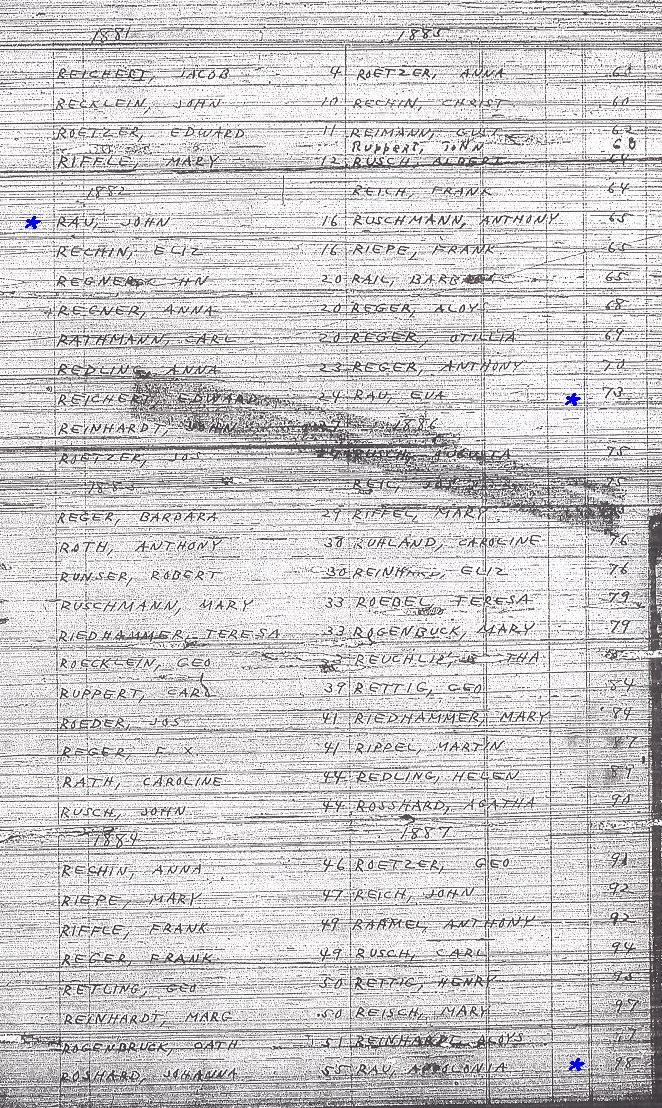 1881
REICHERT, JACOB 4
RECKLEIN, JOHN 10
ROETZER, EDWARD 11
RIFFLE, MARY 12
1882
RAU, JOHN 16
RECHIN, ELIZ 16
20
REGNER, ANNA 20
RATHMANN, CARL 20
REDLING, ANNA 23
REICHERT, EDWARD 24
REINHARDT, JOHN
ROETZER, JOS
1883
REGER, BARBARA 29
ROTH, ANTHONY 30
RUNSER, ROBERT 30
RUSCHMANN, MARY 33
RIEDHAMMER, TERESA 33
ROECKLEIN, GEO
RUPPERT, CARL 39
ROEDER, JOS 41
REGER, F. X. 41
RATH, CAROLINE 44
RUSCH, JOHN 44
1884
RECHIN, ANNA 46
RIEPE, MARY 47
RIFFLE, FRANK 49
REGER, FRANK 49
RETLING, GEO 50
REINHARDT, MARG 50
ROGENBRUCK, CATH 51
ROSHARD, JOHANNA 55
1885
ROETZER, ANNA
RECHIN, CHRIST 60
REIMANN, GUST 62
RUPPERT, JOHN
RUSCH, ALBERT 64
REICH, FRANK 64
RUSCHMANN, ANTHONY 65
RIEPE, FRANK 65
RAIL, 65
REGER, ALOYS 68
REGER, OTILLIA 69
REGER, ANTHONY 70
RAU, EVA 73
1886
RUSCH, 75
75
RIFFEL, MARY
RUHLAND, CAROLINE 76
ELIZ 76
ROEDEL, TERESA 79
ROGENBUCK, MARY 79
THA
RETTIG, GEO 84
RIEDHAMMER, MARY 84
RIPPEL, MARTIN 87
REDLING, HELEN 89
ROSSHARD, AGATHA 90
1887
ROETZER, GEO 91
REICH, JOHN 92
RARMEL, ANTHONY 92
RUSCH, CARL 94
RETTIG, HENRY
REISCH, MARY 97
ALOYS 97
RAU, APPOLONIA 98